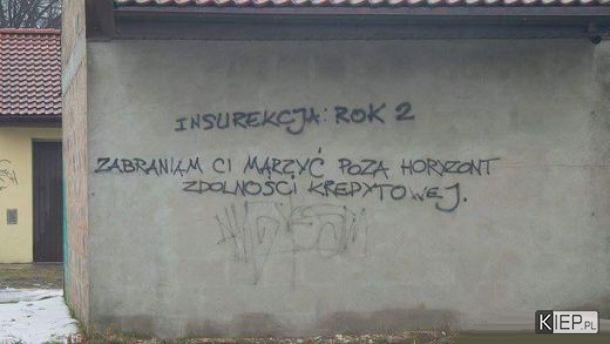 INSUREKCJA: ROK 2
ZABRANIAM CI MARZYĆ POZA HORYZONT
ZDOLNOŚCI KREDYTOWEJ.
KIEP.PL